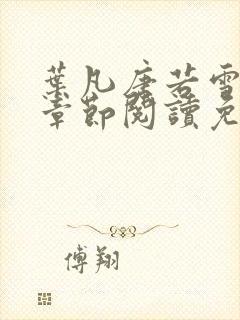 葉凡唐若雪
章節閱讀免
傅翔